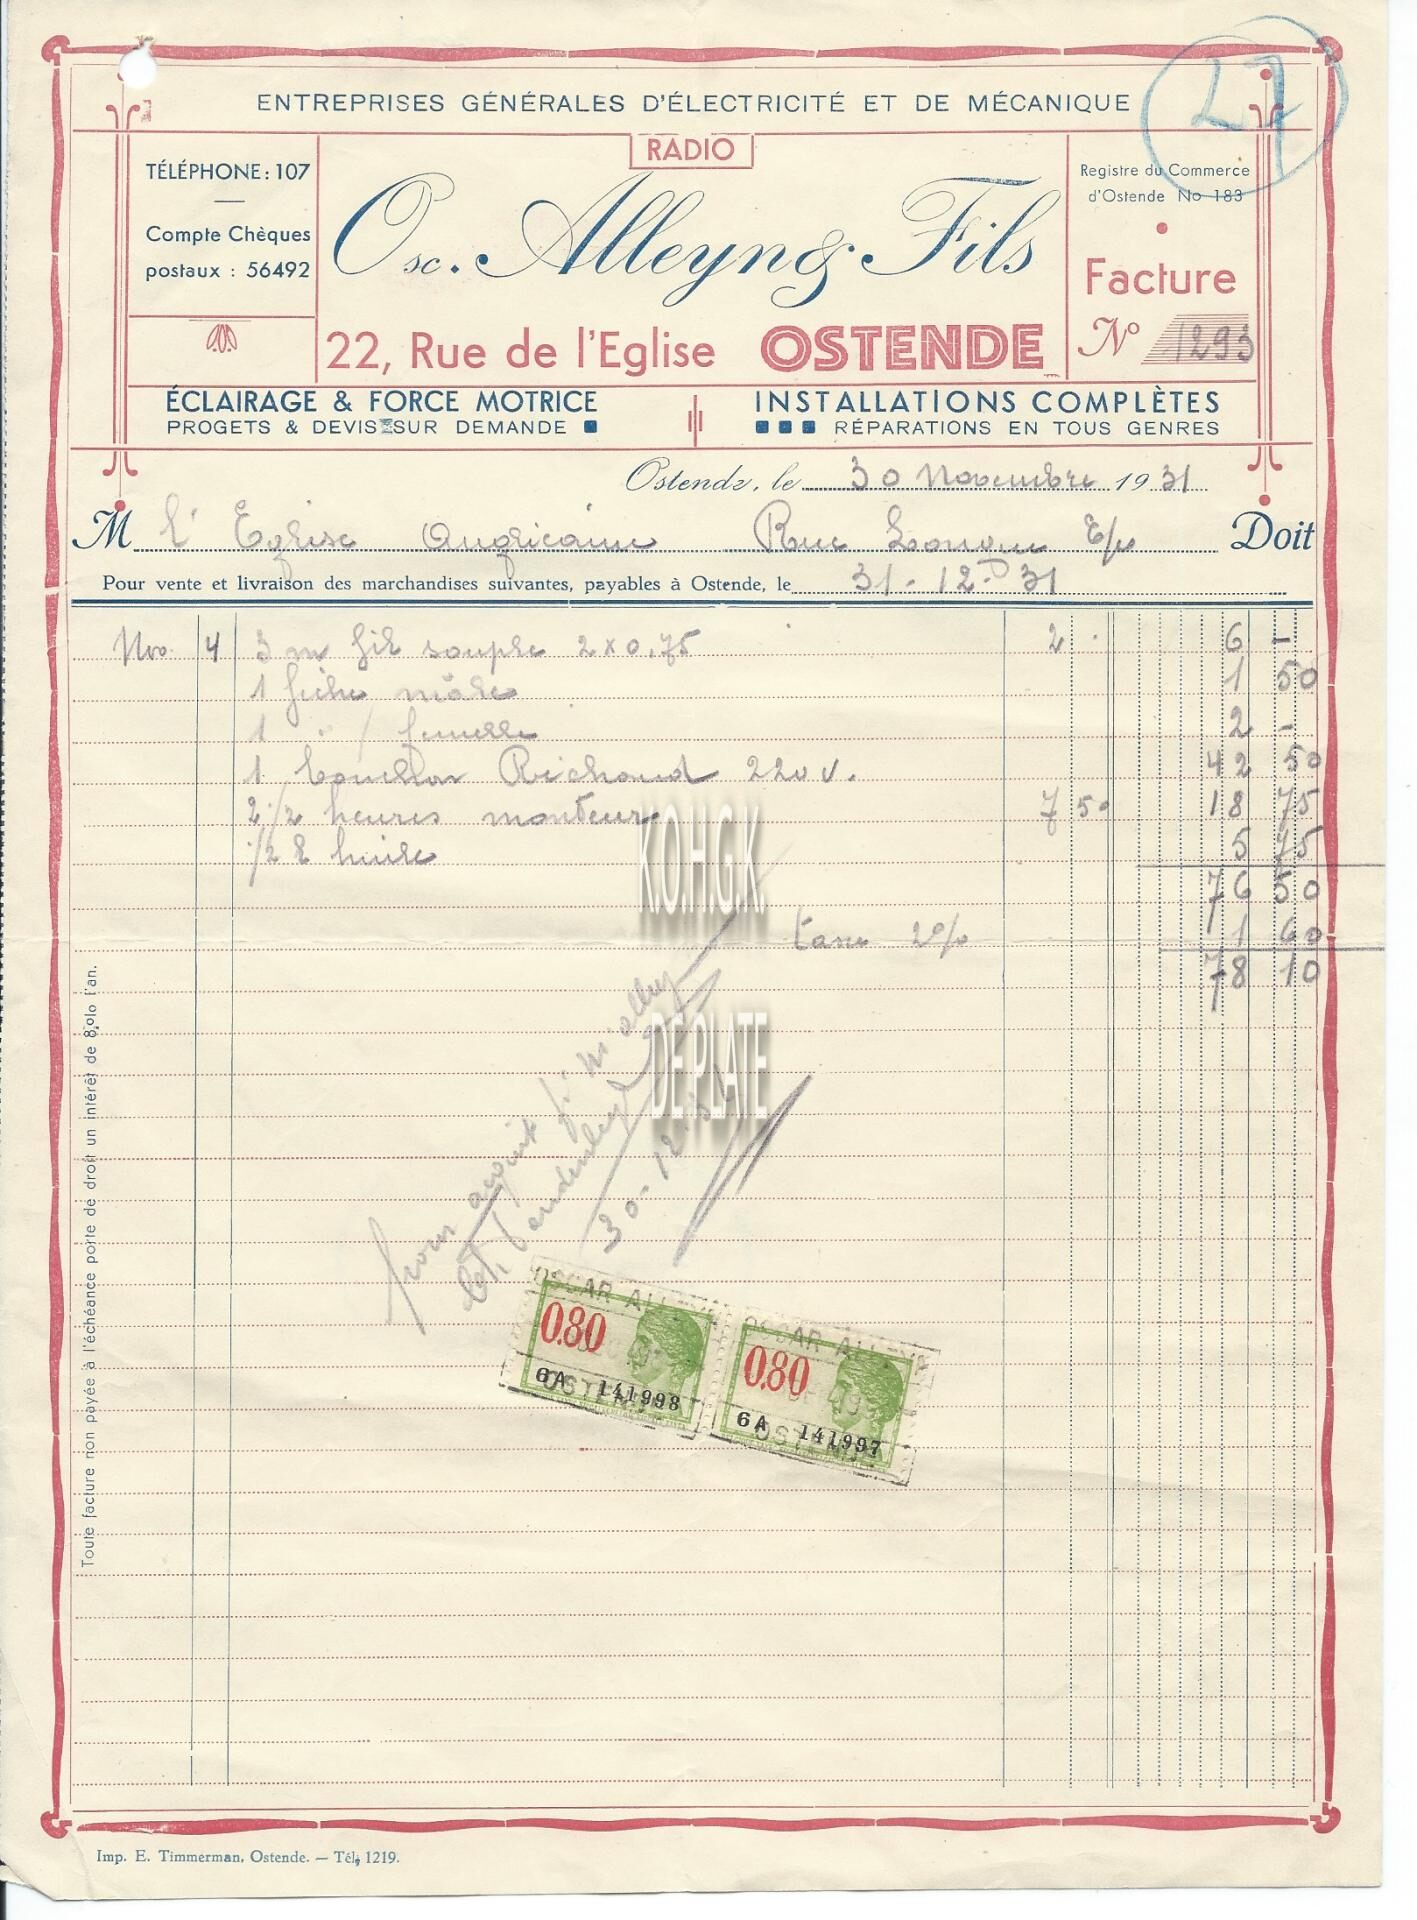 27
ENTREPRISES GÉNÉRALES D'ÉLECTRICITÉ ET DE MÉCANIQUE
RADIO
TÉLÉPHONE: 107
Compte Chèques
postaux : 56492
Osc. Alleyn & Fils
22, Rue de l'Eglise OSTENDE
Registre du Commerce
d'Ostende No 183
Facture
No 1293
ÉCLAIRAGE & FORCE MOTRICE
PROGETS & DEVIS SUR DEMANDE
INSTALLATIONS COMPLÈTES
RÉPARATIONS EN TOUS GENRES
Ostende, le 30 Novembre 1931
M l'Eglise Anglicaine Rue Longue E/v Doit
Pour vente et livraison des marchandises suivantes, payables à Ostende, le 31-12-31
Nov. 4 3 m fil souple 2x0,75 2. 6 -
1 fiche mâle 1 50
1 " femelle 2 -
1 Richaud 220 v. 42 50
2 1/2 heures monteur 7 50 18 75
1/2 l huile 5 75
76 50
taxe 2% 1 60
78 10
pour acquit
30-12-31
OSCAR ALLEYN
0.80
6A 141998
OSTENDE
OSCAR ALLEYN
0.80
6A 141997
OSTENDE
K.O.H.G.K.
DE PLATE
Toute facture non payée à l'échéance porte de droit un intérêt de 8 o/o l'an.
Imp. E. Timmerman, Ostende. — Tél. 1219.